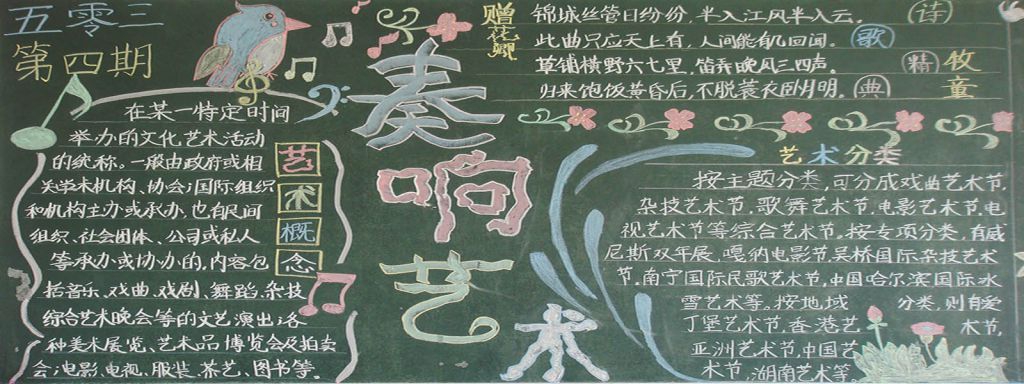 五零三
第四期
在某一特定时间
举办的文化艺术活动
的统称。一般由政府或相
关学术机构、协会；国际组织
和机构主办或承办，也有民间
组织、社会团体、公司或私人
等承办或协办的，内容包
括音乐、戏曲、戏剧、舞蹈、杂技
综合艺术晚会等的文艺演出；各
种美术展览、艺术品博览会及拍卖
会；电影、电视、服装、茶艺、图书等。
艺
术
概
念
奏
响
艺
术
赠花卿
锦城丝管日纷纷，半入江风半入云。
此曲只应天上有，人间能有几回闻。
草铺横野六七里，笛弄晚风三四声。
归来饱饭黄昏后，不脱蓑衣卧月明。
诗
歌
精
典
牧童
艺术分类
按主题分类，可分成戏曲艺术节，
杂技艺术节，歌舞艺术节，电影艺术节，电
视艺术节等综合艺术节，按专项分类，有威
尼斯双年展，嘎纳电影节，吴桥国际杂技艺术
节，南宁国际民歌艺术节，中国哈尔滨国际冰
雪艺术等。按地域 分类，则有爱
丁堡艺术节，香港艺 术节，
亚洲艺术节，中国艺
术节，湖南艺术等。